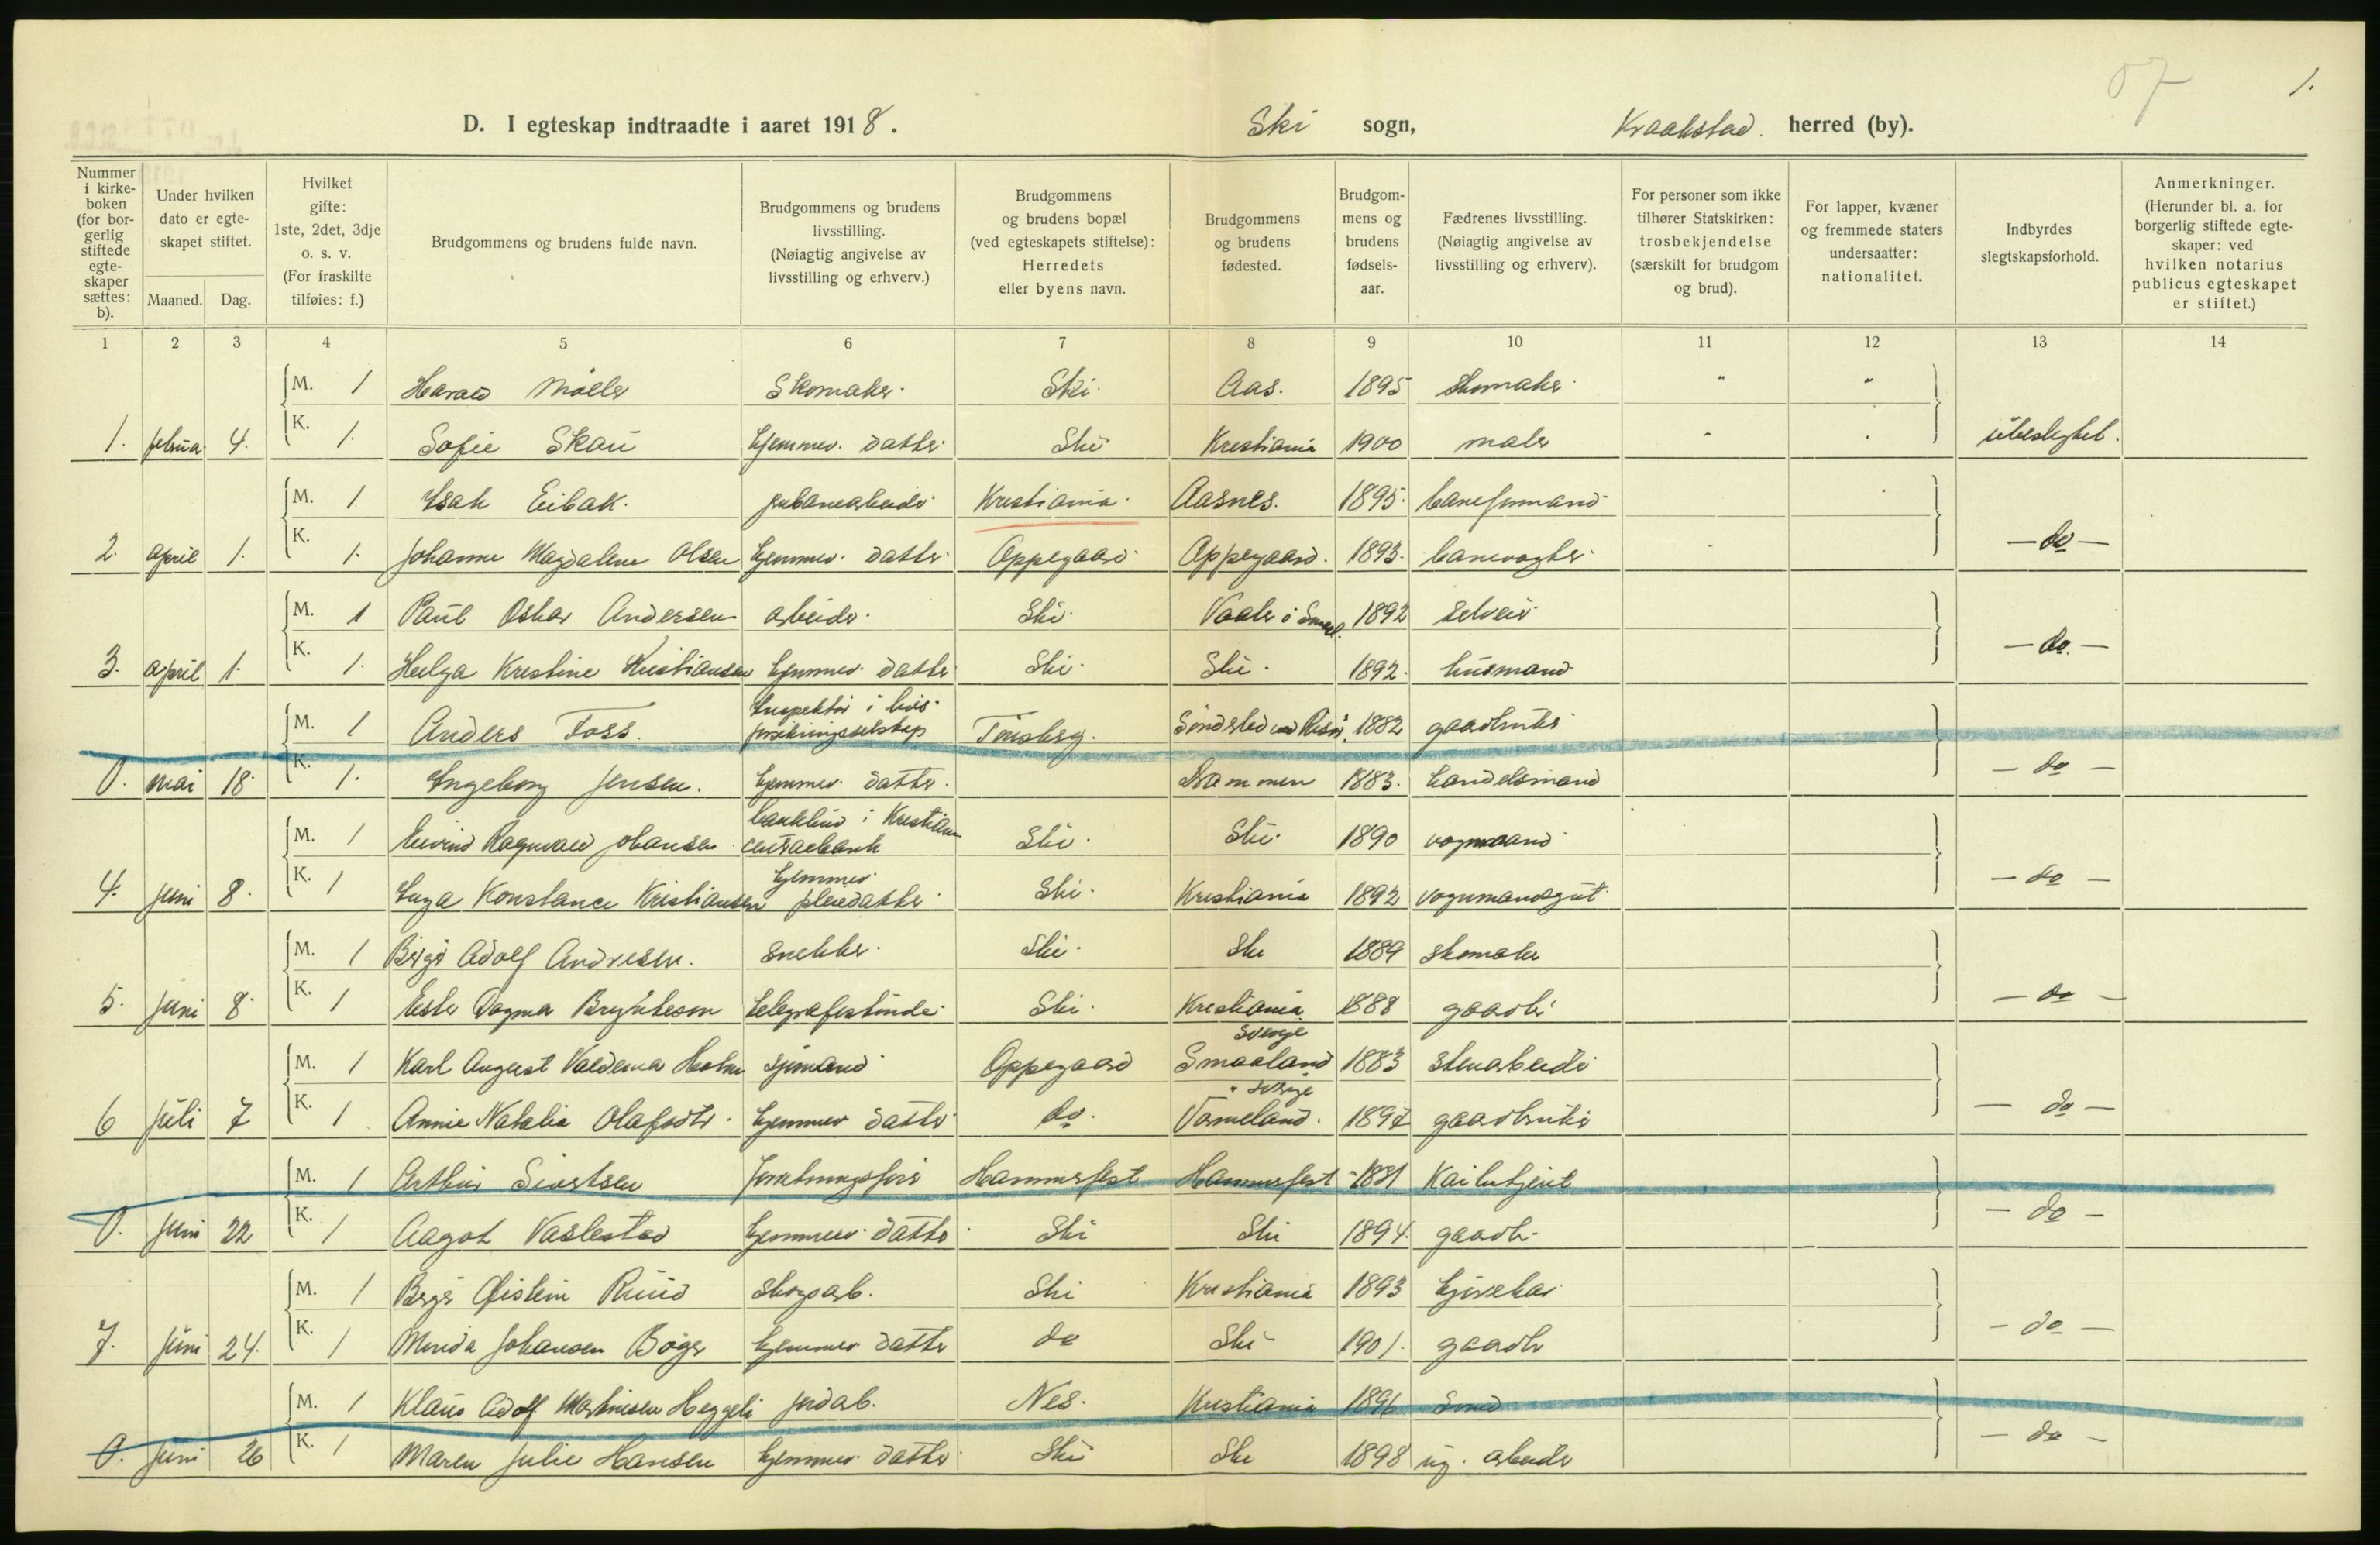 07
1.
D. I egteskap indtraadte i aaret 1918. Ski sogn, Kraakstad. herred (by).
Nummer i kirke-boken (for bor-gerlig stiftede egte-skaper sættes: b).
Under hvilken dato er egte-skapet stiftet.
Maaned. Dag.
Hvilket gifte: 1ste, 2det, 3dje o. s. v. (For fraskilte tilføies: f.)
Brudgommens og brudens fulde navn.
Brudgommens og brudens livsstilling. (Nøiagtig angivelse av livsstilling og erhverv.)
Brudgommens og brudens bopæl (ved egteskapets stiftelse): Herredets eller byens navn.
Brudgommens og brudens fødested.
Brudgom-mens og brudens fødsels-aar.
Fædrenes livsstilling. (Nøiagtig angivelse av livsstilling og erhverv).
For personer som ikke tilhører Statskirken: trosbekjendelse (særskilt for brudgom og brud).
For lapper, kvæner og fremmede staters undersaatter: nationalitet.
Indbyrdes slegtskapsforhold.
Anmerkninger. (Herunder bl. a. for borgerlig stiftede egte-skaper: ved hvilken notarius publicus egteskapet er stiftet.)
1 2 3 4 5 6 7 8 9 10 11 12 13 14
M. 1 Harald Møller Skomaker. Ski. Aas. 1895 skomaker " "
1. februa. 4. K. 1. Sofie Skau hjemmev. datter. Ski Kristiania 1900 maler " " ubeslegtet.
M. 1 Isak Eibak. Kristiania. Aasnes. 1895.
2. april 1. K. 1. Johanne Magdalene Olsen hjemmev. datter. Oppegaard Oppegaard. 1893. banevogter. — do —
M. 1 Paul Oskar Andersen arbeider. Ski. Vaaler i Smaal. 1892 selveier
3. april 1. K. 1. Helga Kristine Kristiansen hjemmev. datter Ski. Ski. 1892. husmand — do. —
M. 1 Anders Foss. Inspektør i livs-forsikringsselskap Tønsberg. Søndeled ved Risør. 1882 gaardbruker
0. mai 18. K. 1. Ingeborg Jensen. hjemmev. datter. Drammen 1883. handelsmand — do —
M. 1 Eivind Ragnvald Johansen Kristiania centralbank Ski. Ski. 1890 vognmand
4. juni 8. K. 1 Inga Konstance Kristiansen hjemmev. pleiedatter Ski. Kristiania 1892 vognmandsgut — do —
M. 1 Birger Adolf Andresen. snekker. Ski. Ski 1889 skomaker
5. juni 8. K. 1 Ester Dagmar telegrafistinde Ski. Kristiania 1888 gaardbr — do —
M. 1 Karl August Valdemar Holm sjømand Oppegaard Smaaland Sverige 1883 stenarbeider
6 juli 7 K. 1 Annie Natalia Olafsdtr. hjemmev datter do. Värmeland. Sverige 1897 gaardbruker — do —
M. 1 Arthur Sivertsen forretningsfører Hammerfest Hammerfest 1881
0. juni 22 K. 1 Aagot Vaslestad hjemmev. datter Ski Ski 1894. gaardbr. — do —
M. 1 Birger Øistein Ruud skogsarb. Ski Kristiania 1893
7. juni 24. K. 1 Johansen Bøger hjemmev datter do Ski 1901. gaardbr — do —
M. 1 Klaus Adolf Martinisen Heggeli jordarb. Nes. Kristiania 1896 Smed
0. juni 26 K. 1 Maren Julie Hansen hjemmev. datter Ski Ski 1898 arbeider — do —